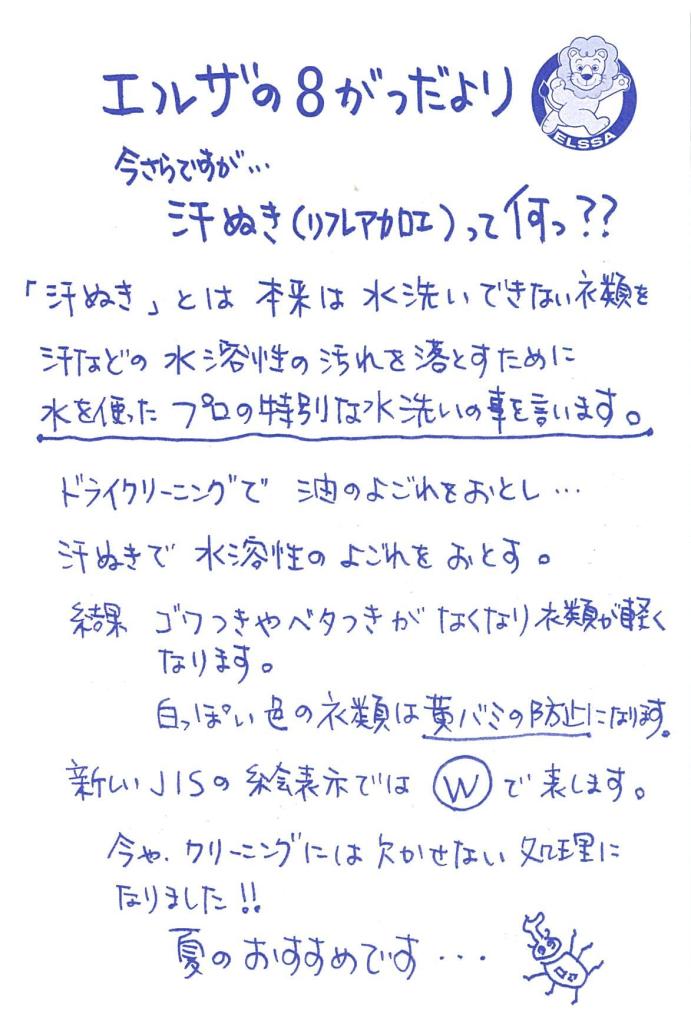 エルザの8がつだより
ELSSA
今さらですが…
汗ぬき(リフレアカロエ)って何っ??
「汗ぬき」とは 本来は 水洗いできない衣類を
汗などの 水溶性の汚れを落とすために
水を使った プロの特別な水洗いの事を言います。
ドライクリーニングで 油のよごれをおとし…
汗ぬきで 水溶性の よごれを おとす。
結果 ゴワつきやベタつきが なくなり 衣類が軽く
なります。
白っぽい色の衣類は黄バミの防止になります。
新しいJISの絵表示では Ⓦ で 表します。
今や、クリーニングには欠かせない 処理に
なりました!!
夏のおすすめです…